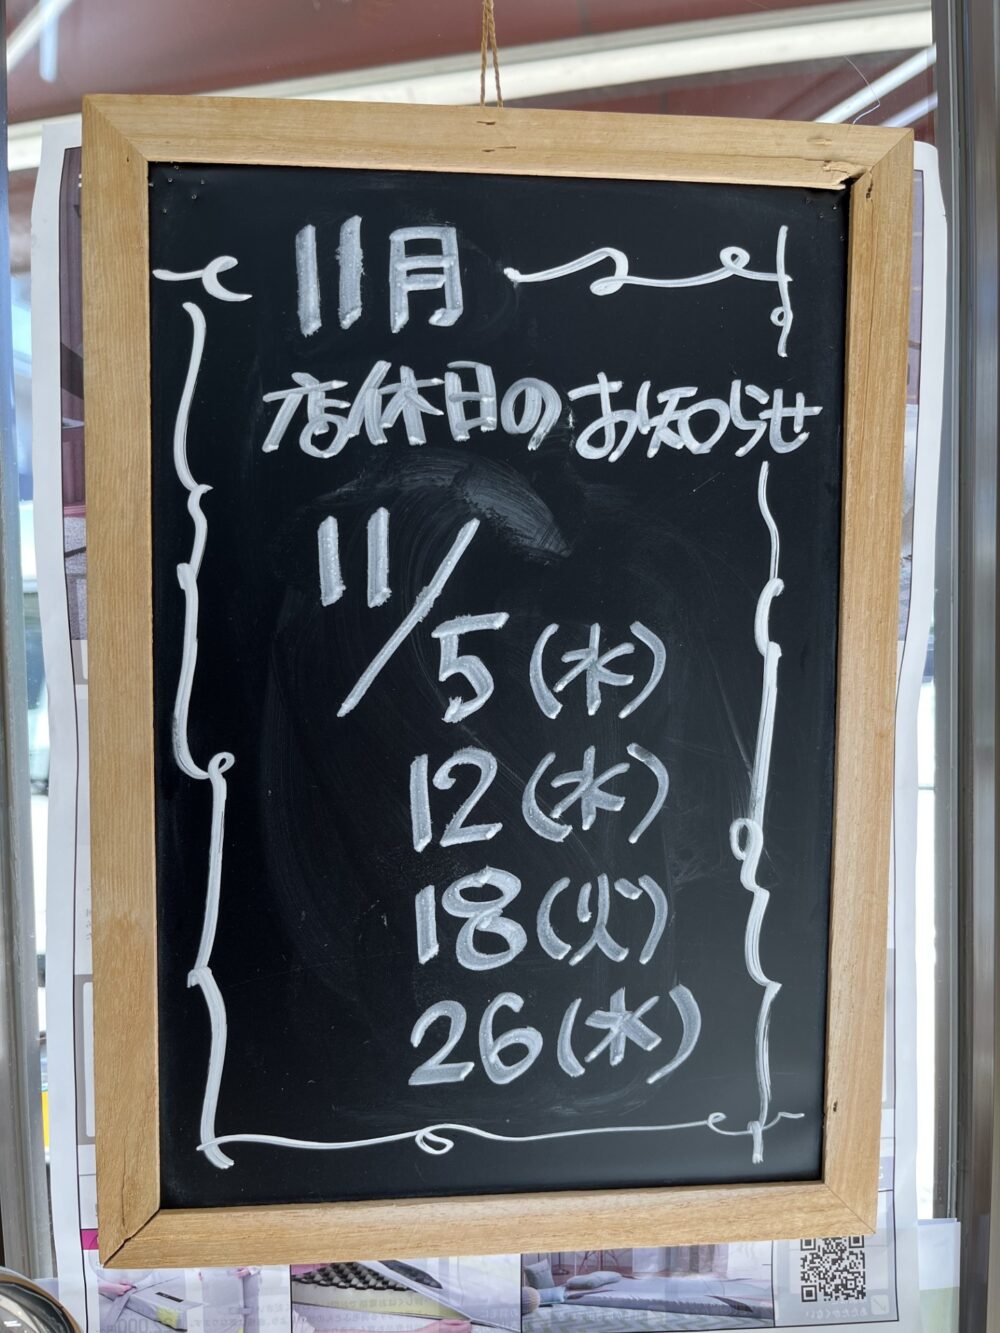 11月
店休日のお知らせ
11/5(水)
12(水)
18(火)
26(水)